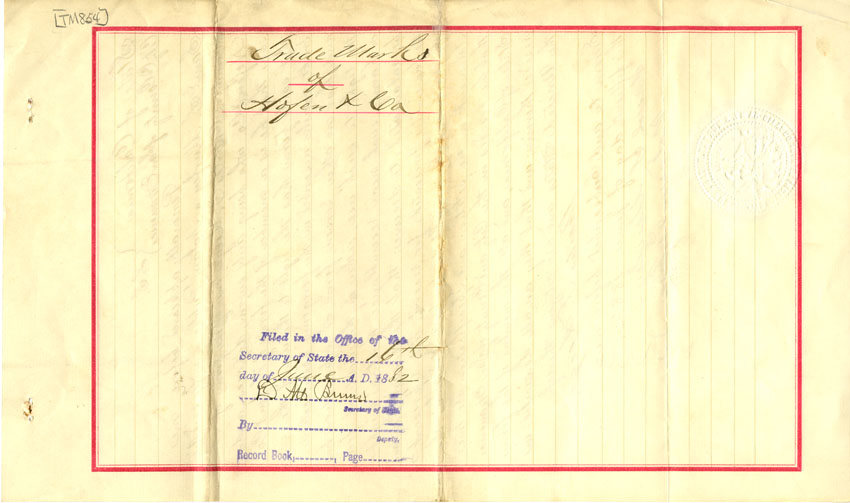 [TM854]
Trade Marks
of
Hofen & Co
Filed in the Office of the
Secretary of State the 16th
day of June A. D. 1882
Secretary of State.
By
Deputy.
Record Book, , Page